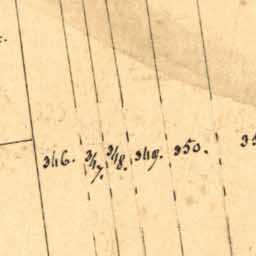 346. 347. 348. 349. 350.